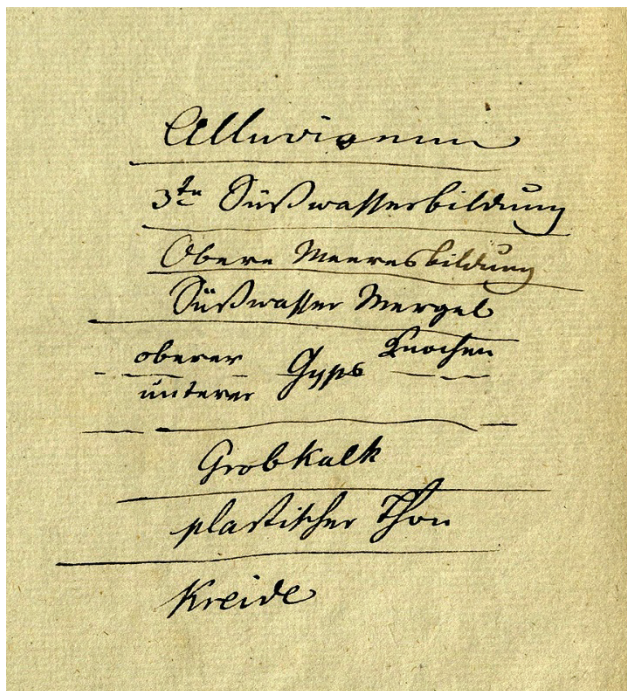 Alluvionen
3te Süßwasserbildung
Obere Meeresbildung
Süßwasser Mergel
oberer Gyps Knochen
unterer
Grobkalk
plastischer Thon
Kreide